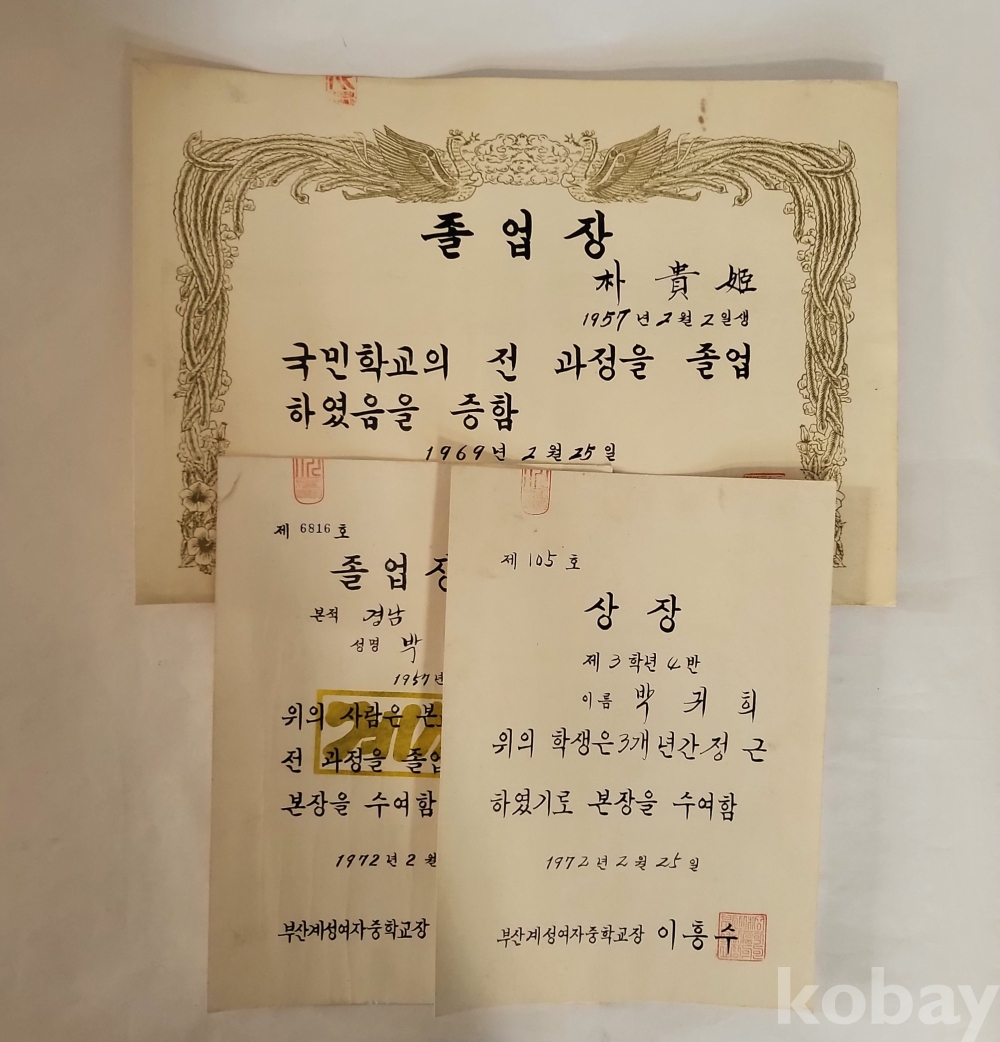 졸업장
朴 貴 姬
1957년 2월 2일생
국민학교의 전 과정을 졸업
하였음을 증함
1969년 2월 25일
제 6816 호
졸업장
본적 경남
성명 박
1957년
위의 사람은 본
전 과정을 졸업
본장을 수여함
1972년 2월
부산계성여자중학교장
제 105 호
상장
제 3 학년 4 반
이름 박 귀 희
위의 학생은 3개년간 정근
하였기로 본장을 수여함
1972년 2월 25일
부산계성여자중학교장 이흥수
kobay